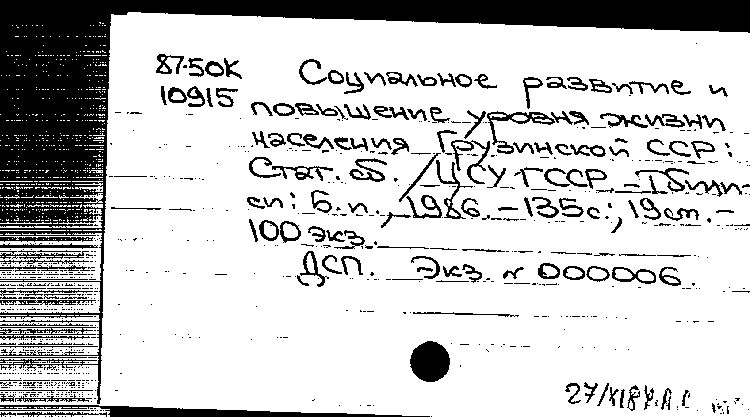 87-50К Социальное развитие и
10915 повышение уровня жизни
населения Грузинской ССР:
Стат. сб. / ЦСУ ГССР. - Тбили-
си: Б.и., 1986. - 135с.; 19см. -
100 экз.
ДСП. Экз. № 000006.